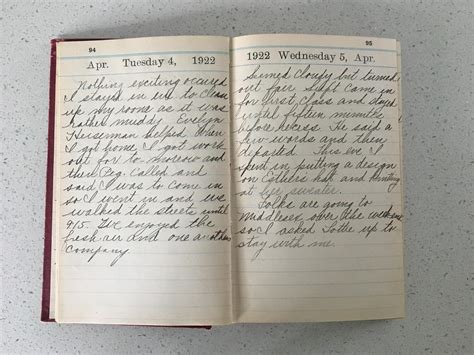 94
Apr. Tuesday 4, 1922
Nothing exciting occured
I stayed in to clean
up my room as it was
rather muddy. Evelyn
Heiserman helped when
I got home I got work
out for to-morrow and
then Peg called and
said I was to come in
so I went in and we
walked the streets until
9/5. I've enjoyed the
fresh air and one another
company.
95
1922 Wednesday 5, Apr.
Seemed cloudy but turned
out fair Supt came in
for first class and stayed
until fifteen minutes
before recess. He said a
few words and then
departed. This eve I
spent in putting a design
on Esthers hat and
at her sweater.
Folks are going to
Middlesex over the
so I asked up to
stay with me.